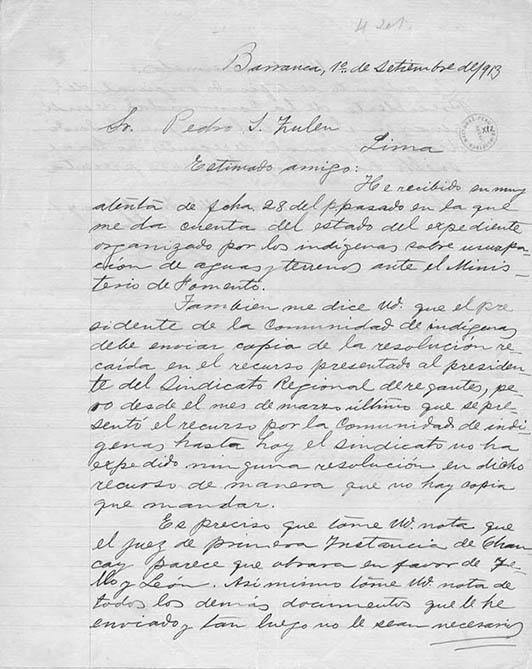 Barranca, 1º de Setiembre de/913
Sr. Pedro S. Zulen
Lima
Estimado amigo:
He recibido su muy
atenta de fcha 28 del ppasado en la que
me da cuenta del estado del expediente
organizado por los indígenas sobre usurpa-
ción de aguas y terrenos ante el Minis
terio de Fomento.
Tambien me dice Ud. que el pre
sidente de la Comunidad de indígenas
debe enviar copia de la resolución re
caída en el recurso presentado al presiden
te del Sindicato Regional de regantes, pe
ro desde el mes de marzo último que se pre-
sentó el recurso por la Comunidad de indi
genas hasta hoy el sindicato no ha
expedido ninguna resolución en dicho
recurso de manera que no hay copia
que mandar.
Es preciso que tome Ud. nota que
el juez de primera Instancia de Chan
cay parece que obrara en favor de
y León. Asi mismo tome Ud. nota de
todos los demás documentos que le he
enviado y tan luego no le sean necesarios